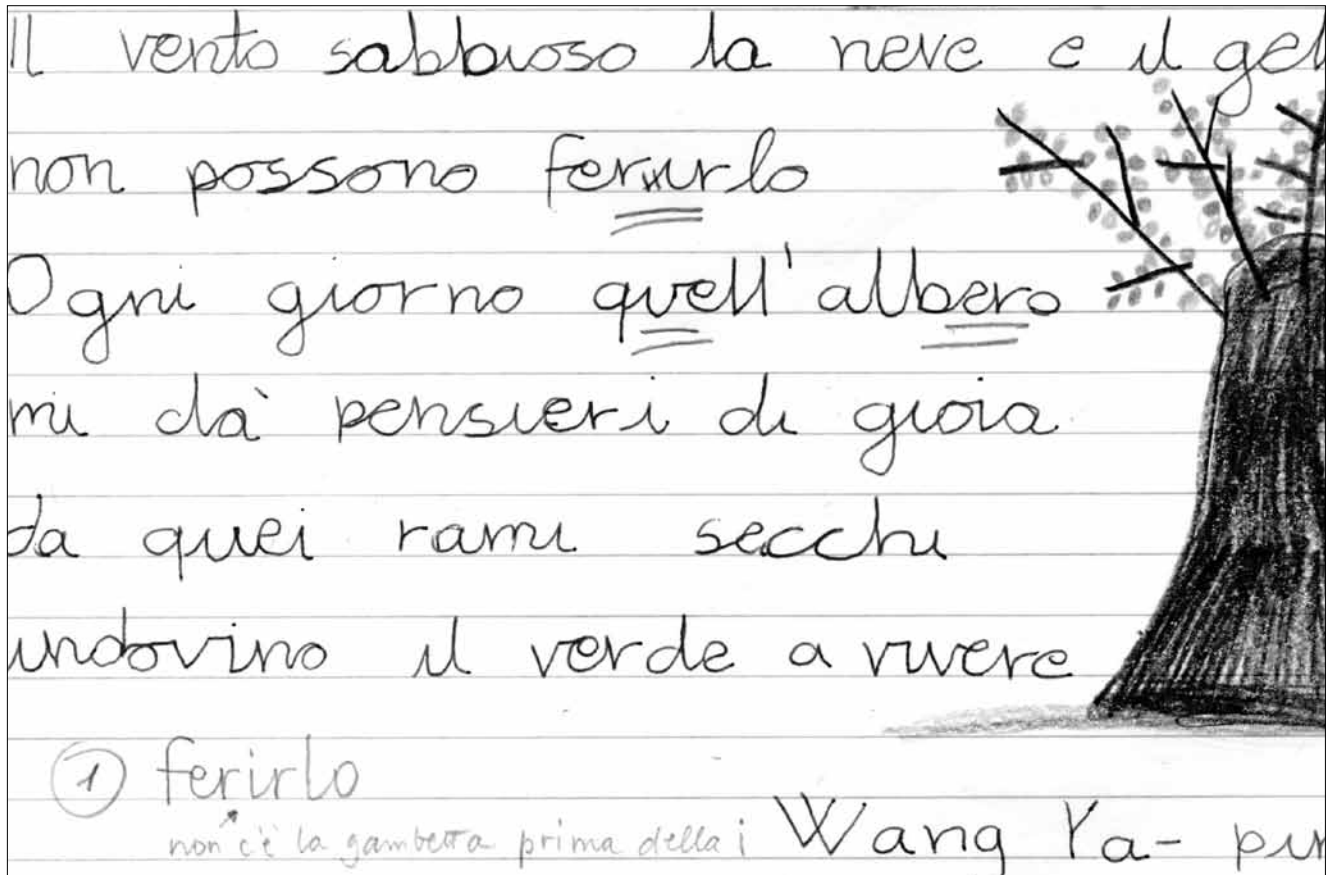 Il vento sabbioso la neve e il gel
non possono ferirlo
Ogni giorno quell'albero
mi dà pensieri di gioia
da quei rami secchi
indovino il verde a vivere
1 ferirlo
non c'è la gambetta prima della i
Wang Ya-pin